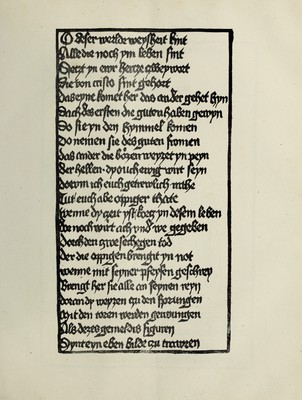 O deser werlde weysheit kint
Alle die noch ym leben sint
Setzt yn ewr hercze zwey wort
Die von cristo sint gehort
das eyne komet her das ander gehet hyn
Nach des ersten die guten haben gewyn
So sie yn den hymmel komen
Do nemen sie des guten fromen
das ander die bözen weyzet yn peyn
der hellen dy ouch ewig wirt seyn
dorvm ich euch getrewlich rathe
Tut euch abe oppiger thate
wenne dy czyt yst korcz yn desem leben
We noch wirt ach vnd we gegeben
Dorch den
Der die oppigen brenght yn not
wenne mit seyner pfeyfen geschrey
Brengt her sie alle an seynen reyn
doran dy weyzen zu den sprungen
Mit den toren werden gezwungen
Als dezes gemeldis figuren
Synt eyn eben bilde zu trawren